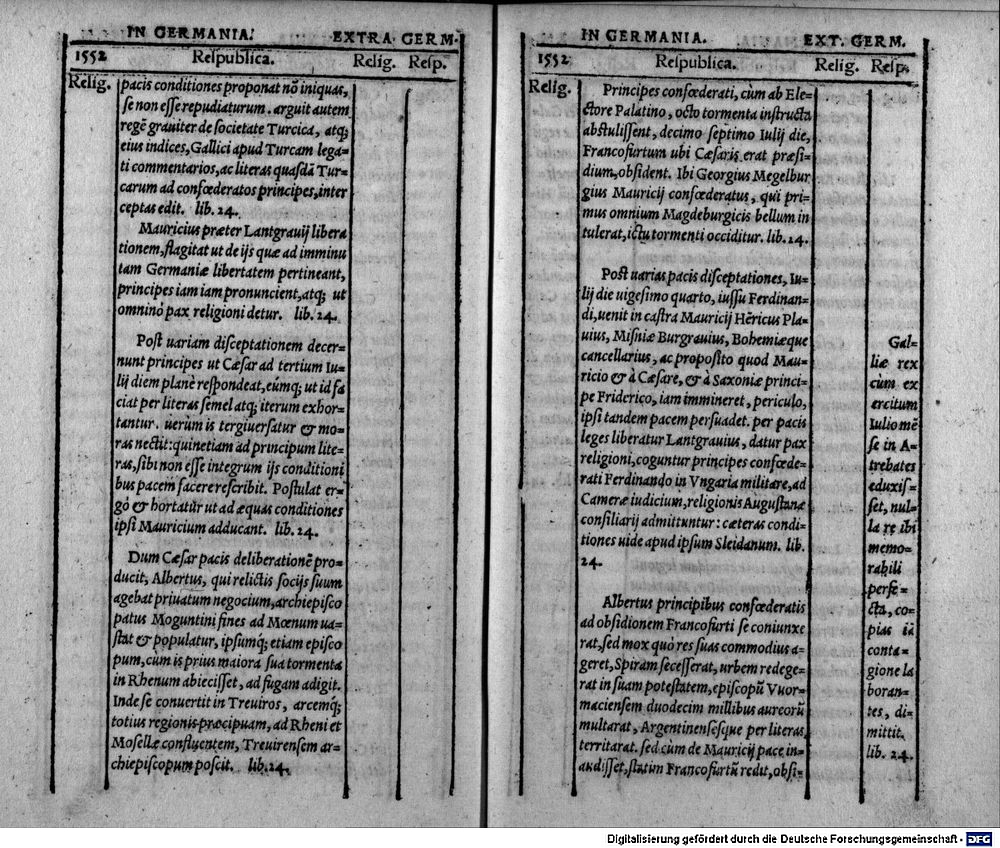 IN GERMANIA.
EXTRA GERM.
1552
Respublica.
Relig. Resp.
Relig.
pacis conditiones proponat nõ iniquas,
se non esse repudiaturum. arguit autem
regẽ grauiter de societate Turcica, atq;
eius indices, Gallici apud Turcam lega-
ti commentarios, ac literas quasdã Tur-
carum ad confœderatos principes, inter
ceptas edit. lib. 24.
Mauricius præter Lantgrauij libera
tionem, flagitat ut de ijs quæ ad imminu
tam Germaniæ libertatem pertineant,
principes iam iam pronuncient, atq; ut
omnino pax religioni detur. lib. 24.
Post uariam disceptationem decer-
nunt principes ut Cæsar ad tertium Iu-
lij diem planè respondeat, eũmq; ut id fa
ciat per literas semel atq; iterum exhor-
tantur. uerum is tergiuersatur & mo-
ras nectit: quinetiam ad principum lite-
ras, sibi non esse integrum ijs conditioni
bus pacem facere rescribit. Postulat er-
gò & hortatur ut ad æquas conditiones
ipsi Mauricium adducant. lib. 24.
Dum Cæsar pacis deliberationẽ pro-
ducit, Albertus, qui relictis socijs suum
agebat priuatum negocium, archiepisco
patus Moguntini fines ad Mœnum ua-
stat & populatur, ipsumq; etiam episco
pum, cum is prius maiora sua tormenta
in Rhenum abiecisset, ad fugam adigit.
Inde se conuertit in Treuiros, arcemq;
totius regionis præcipuam, ad Rheni et
Mosellæ confluentem, Treuirensem ar-
chiepiscopum poscit. lib. 24.
IN GERMANIA.
EXT. GERM.
1552
Respublica.
Relig. Resp.
Relig.
Principes confœderati, cùm ab Ele-
ctore Palatino, octo tormenta instructa
abstulissent, decimo septimo Iulij die,
Francofurtum ubi Cæsaris erat præsi-
dium, obsident. Ibi Georgius Megelbur
gius Mauricij confœderatus, qui pri-
mus omnium Magdeburgicis bellum in
tulerat, ictu tormenti occiditur. lib. 24.
Post uarias pacis disceptationes, Iu-
lij die uigesimo quarto, iussu Ferdinan-
di, uenit in castra Mauricij Hẽricus Pla-
uius, Misniæ Burgrauius, Bohemiæque
cancellarius, ac proposito quod Mau-
ricio & à Cæsare, & à Saxoniæ princi-
pe Friderico, iam immineret, periculo,
ipsi tandem pacem persuadet. per pacis
leges liberatur Lantgrauius, datur pax
religioni, coguntur principes confœde-
rati Ferdinando in Vngaria militare, ad
Cameræ iudicium, religionis Augustanæ
consiliarij admittuntur: cæteras condi-
tiones uide apud ipsum Sleidanum. lib.
24.
Albertus principibus confœderatis
ad obsidionem Francofurti se coniunxe
rat, sed mox quò res suas commodius a-
geret, Spiram secesserat, urbem redege-
rat in suam potestatem, episcopũ Vuor-
maciensem duodecim millibus aureorũ
multarat, Argentinensesque per literas
territarat. sed cum de Mauricij pace in-
audisset, statim Francofurtũ redit, obsi-
Gal-
liæ rex
cùm ex
ercitum
Iulio mẽ
se in A-
trebates
eduxis-
set, nul-
la re ibi
memo-
rabili
perfe-
cta, co-
pias iã
conta-
gione la
boran-
tes, di-
mittit.
lib. 24.
Digitalisierung gefördert durch die Deutsche Forschungsgemeinschaft - DFG